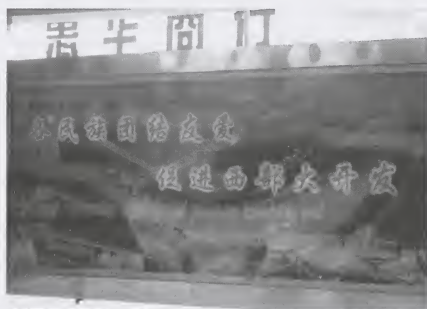 各民族团结友爱
促进西部大开发